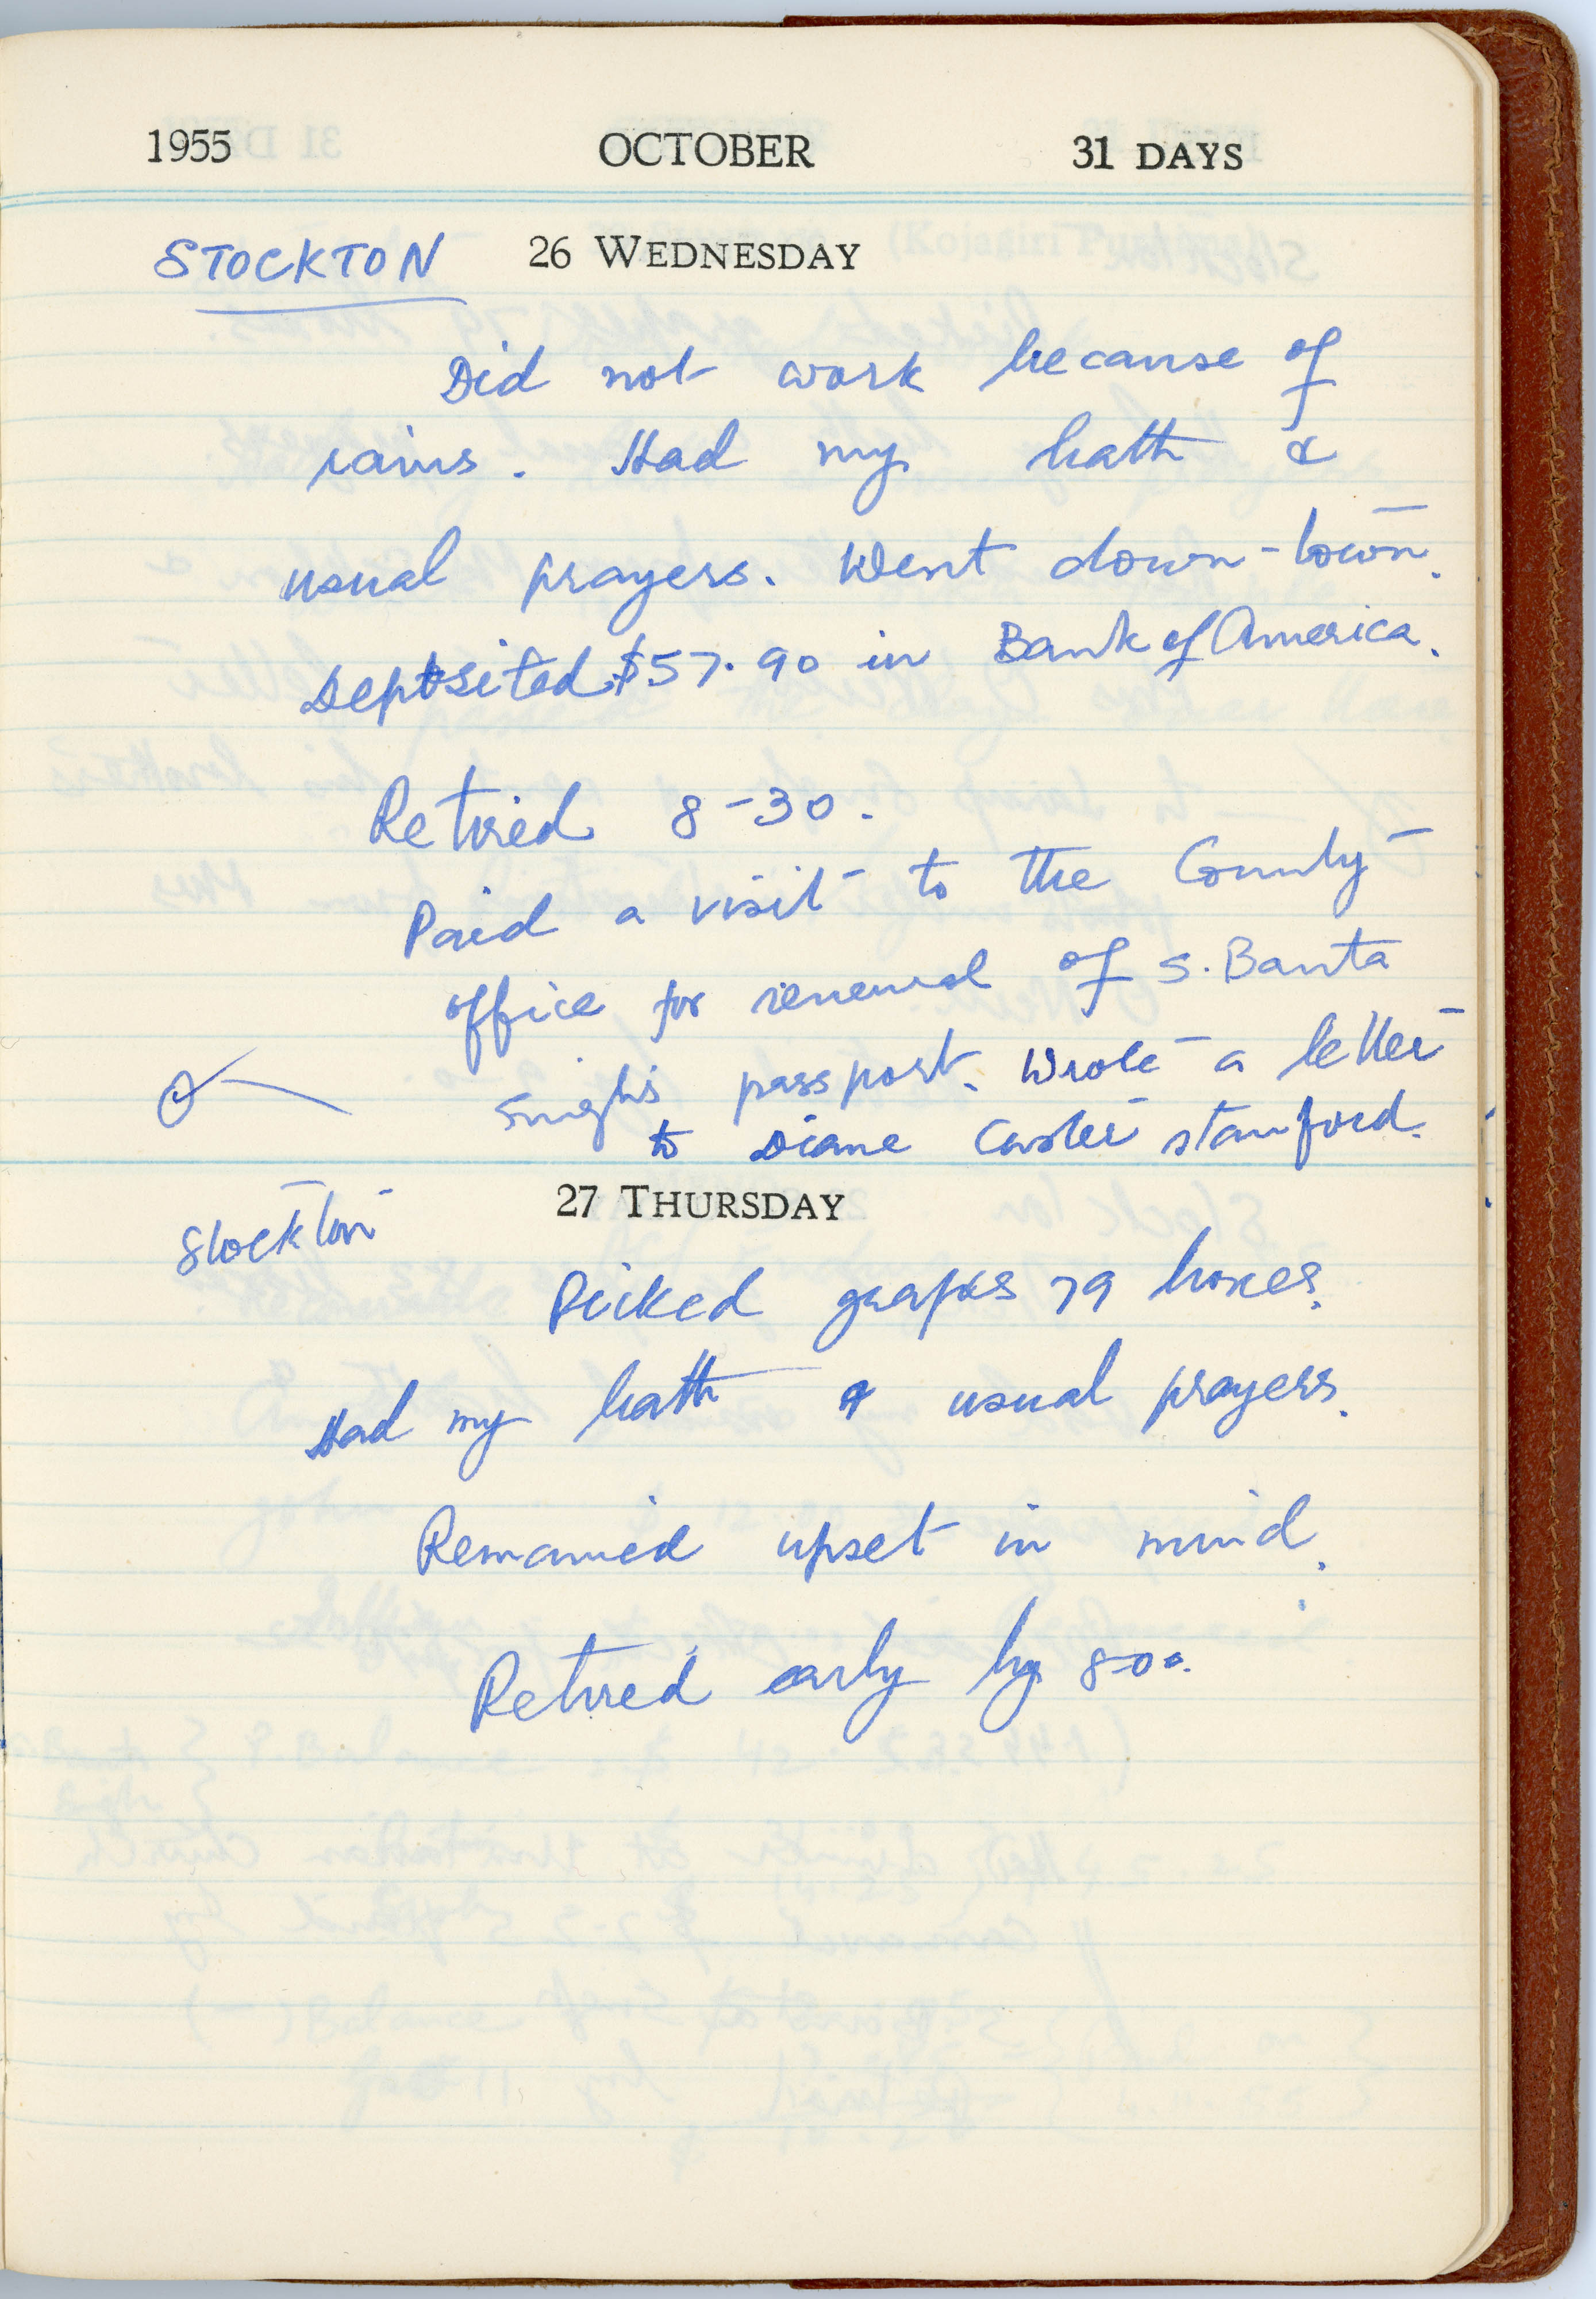 1955 OCTOBER 31 DAYS
STOCKTON 26 WEDNESDAY
Did not work because of
rains. Had my bath &
usual prayers. Went down-town.
Deposited $57.90 in Bank of America.
Retired 8-30.
Paid a visit to the County
office for renewal of S. Banta
Singh's passport. Wrote a letter
to Diane Carter Stanford.
27 THURSDAY
Stockton
Picked grapes 79 boxes.
Had my bath & usual prayers.
Remained upset in mind.
Retired early by 8-00.